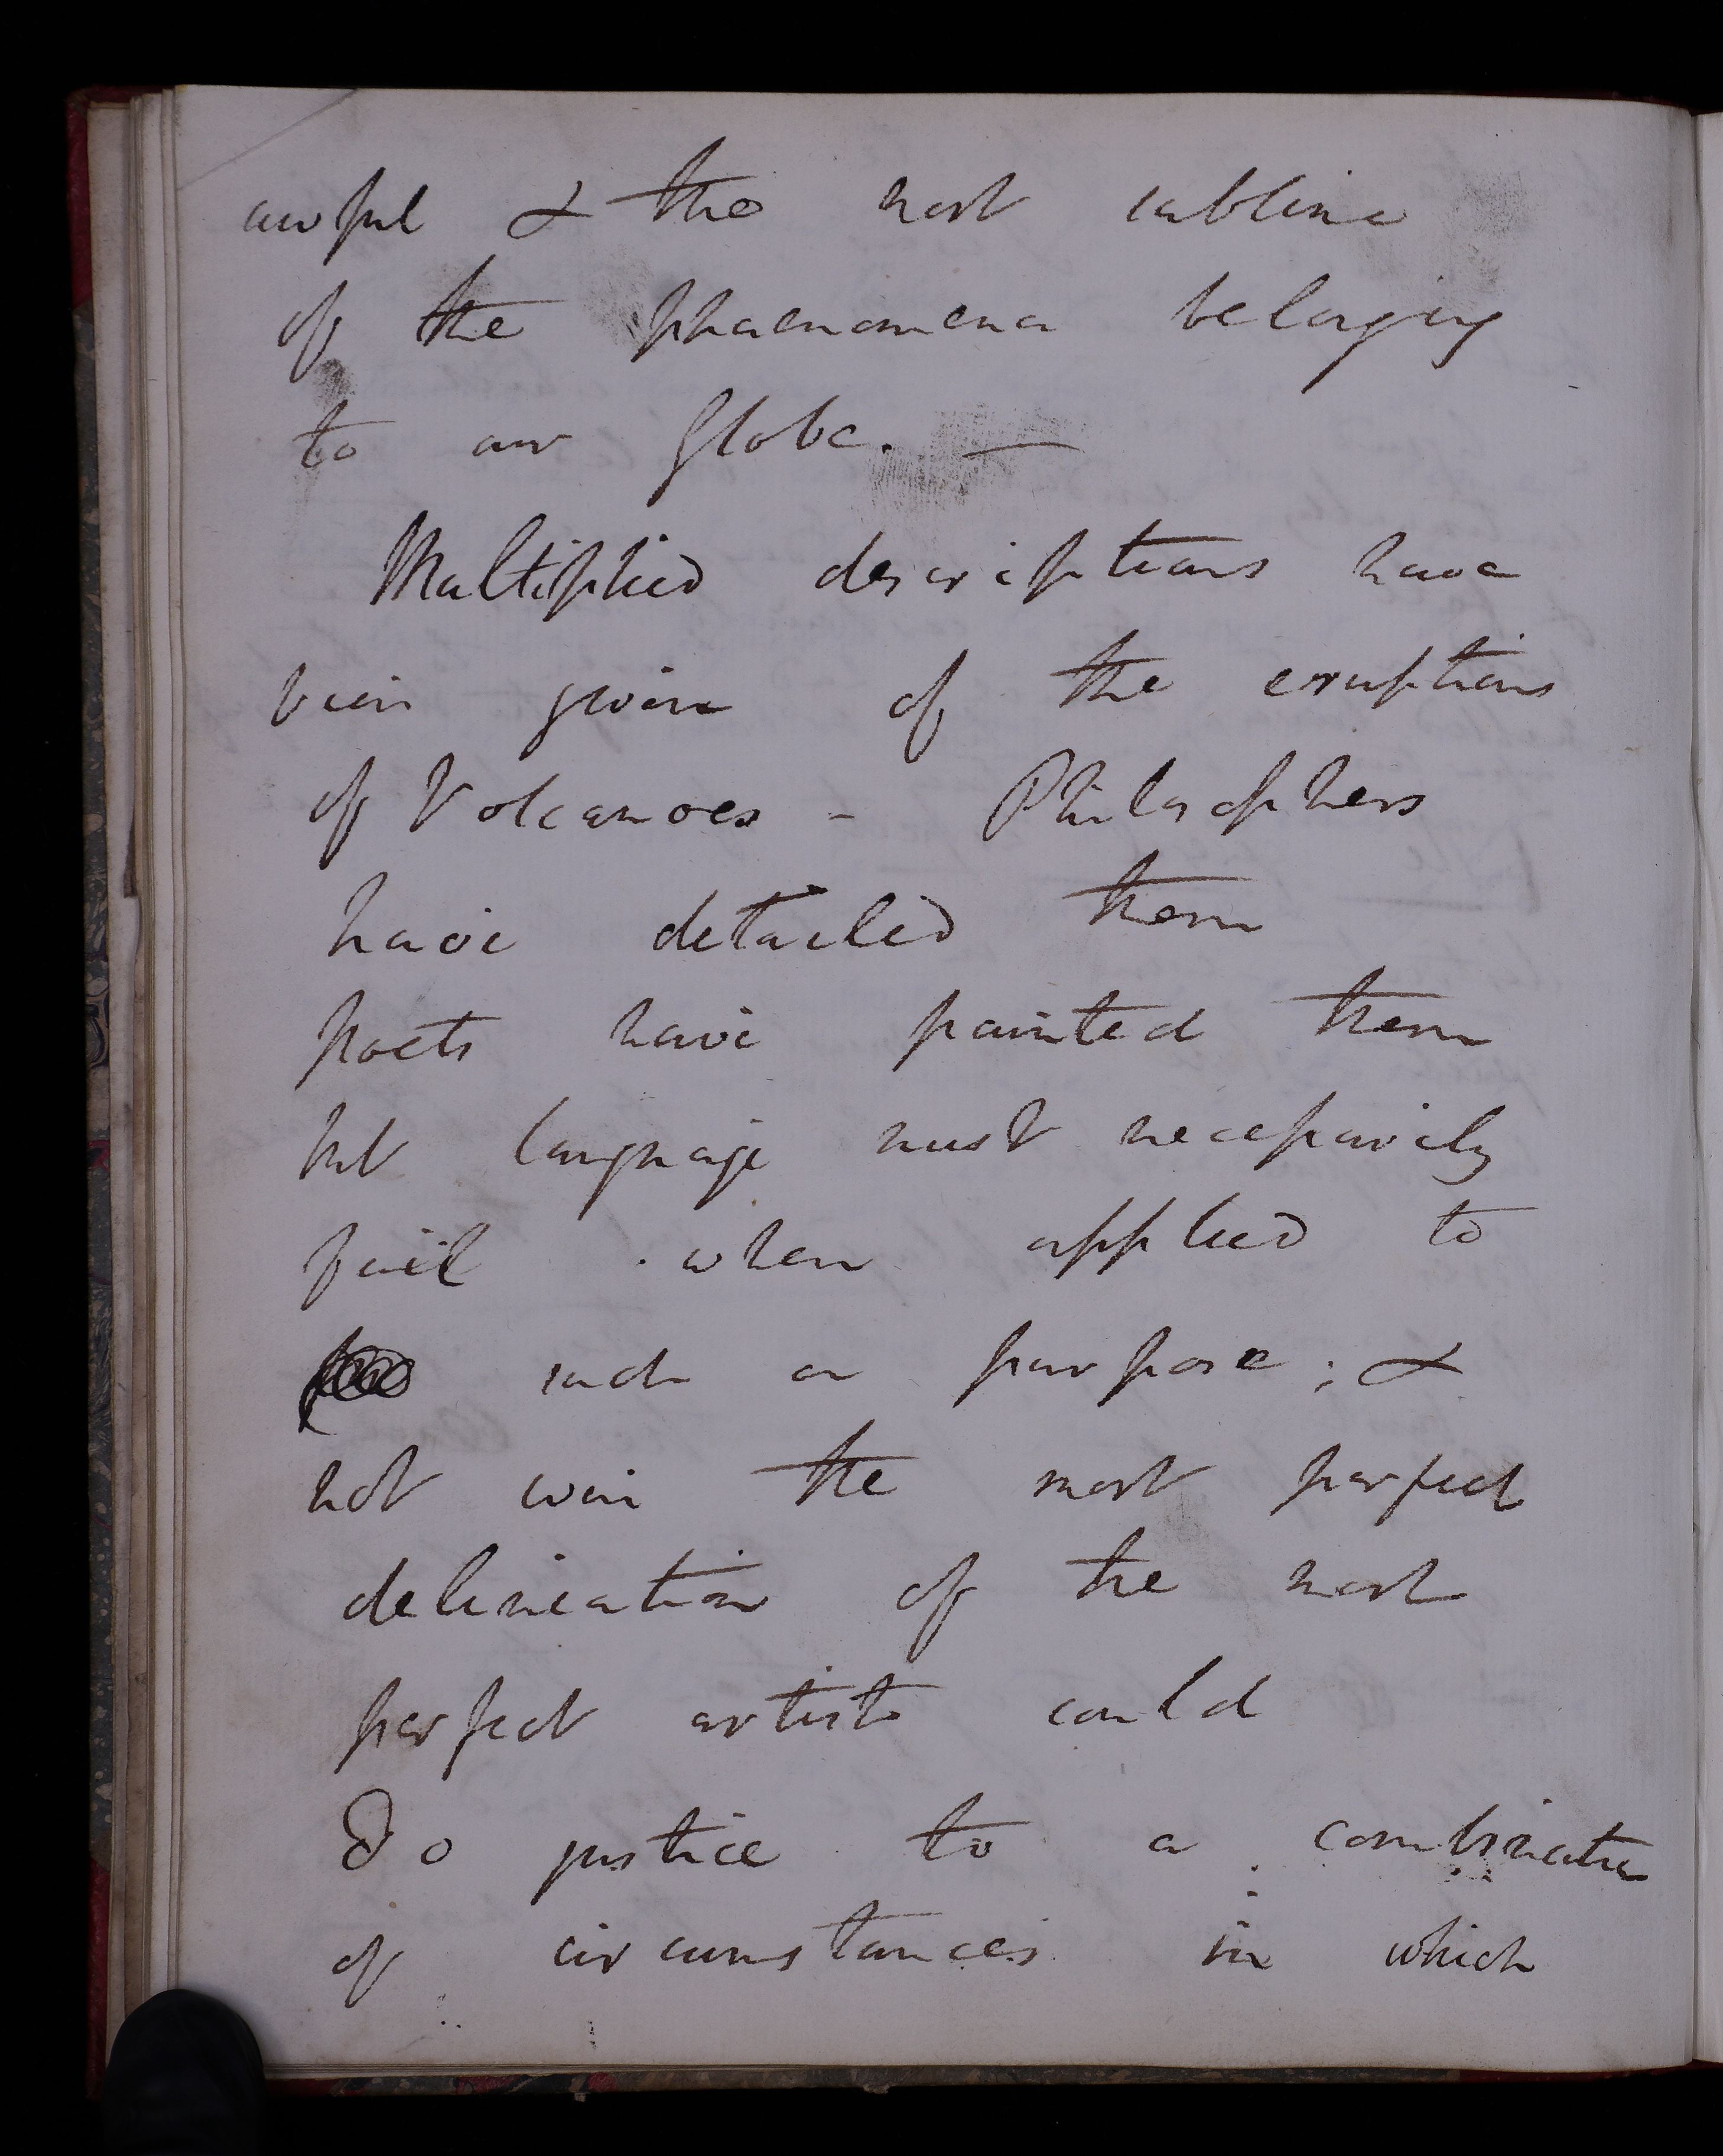 awful & the most sublime
of the phaenomena belonging
to our Globe. —
Multiplied descriptions have
been given of the eruptions
of Volcanoes - Philosophers
have detailed them
poets have painted them
but language must necessarily
fail when applied to
such a purpose; &
not even the most perfect
delineation of the most
perfect artists could
do justice to a combination
of circumstances in which